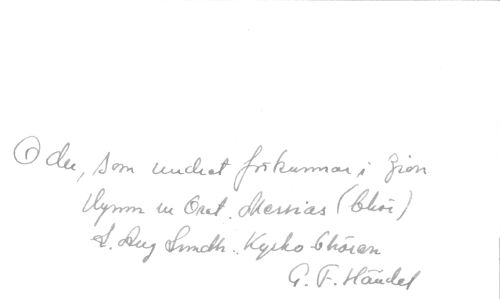 O du, som undret förkunnar i Zion
Hymn ur Orat. Messias (Chör)
Kyrko Chören
G. F. Händel